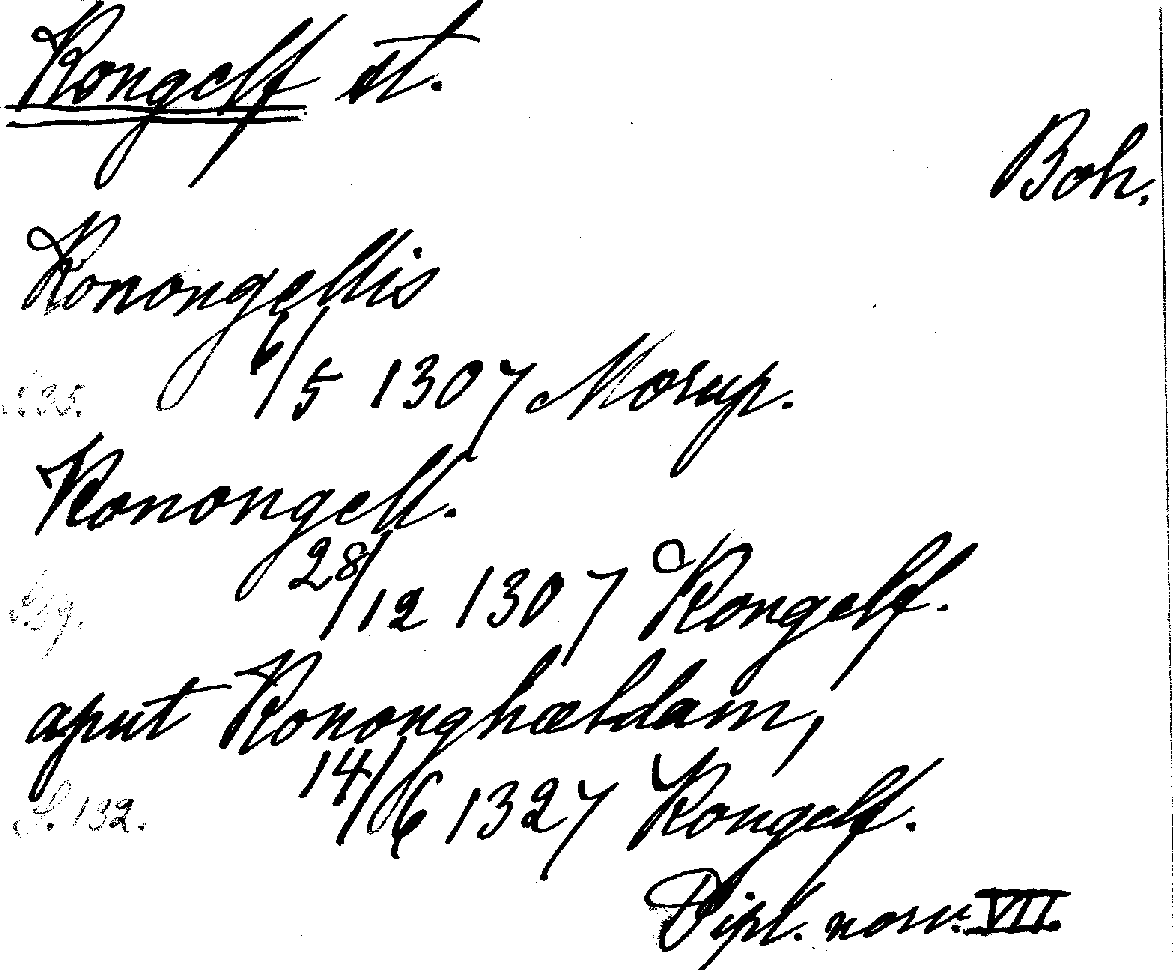 Kongelf st.
Boh.
Konongellis
6/5 1307 Morup.
Konongell.
28/12 1307 Kongelf.
aput Kononghældam,
S. 132. 14/6 1327 Kongelf.
Dipl. norv. VII.